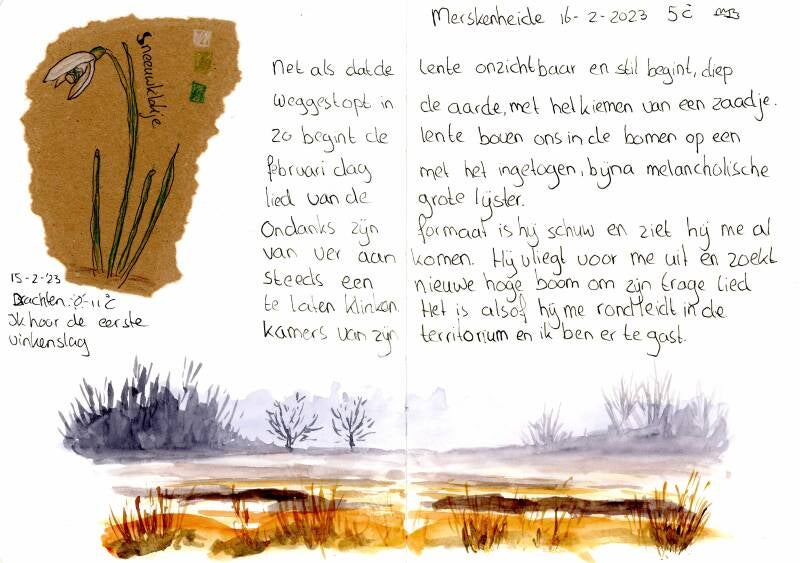 Merskenheide 16-2-2023 5°C MB
Sneeuwklokje
Net als dat de lente onzichtbaar en stil begint, diep
weggestopt in de aarde, met het kiemen van een zaadje.
Zo begint de lente boven ons in de bomen op een
februari dag met het ingetogen, bijna melancholische
lied van de grote lijster.
Ondanks zijn formaat is hij schuw en ziet hij me al
van ver aan komen. Hij vliegt voor me uit en zoekt
steeds een nieuwe hoge boom om zijn trage lied
te laten klinken. Het is alsof hij me rondleidt in de
kamers van zijn territorium en ik ben er te gast.
15-2-'23
Drachten
Ik hoor de eerste
vinkenslag